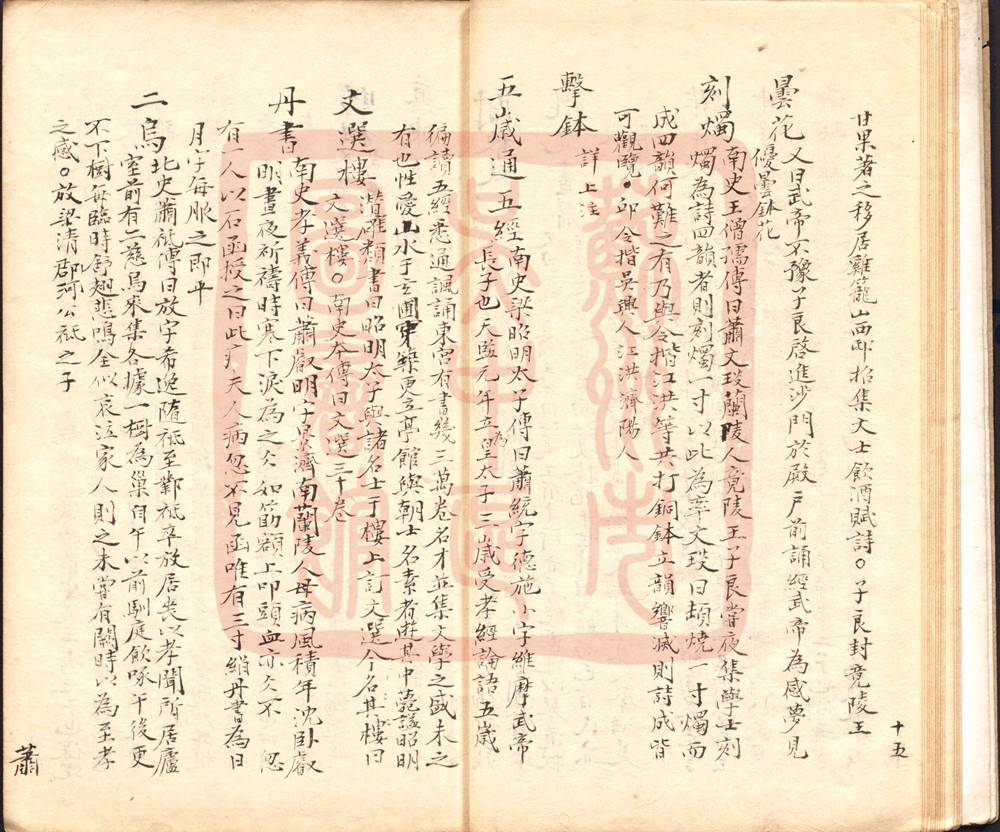 十五
甘果著之移居雞籠山西邸招集文士飲酒賦詩○子良封竟陵王
曇花又曰武帝不豫子良啓進沙門於殿戶前誦經武帝為感夢見
優曇鉢花
刻燭南史王僧孺傳曰蕭文琰蘭陵人竟陵王子良嘗夜集學士刻
燭為詩四韻者則刻燭一寸以此為率文琰曰頓燒一寸燭而
成四韻何難之有乃與令揩江洪等共打銅鉢立韻響滅則詩成皆
可觀覽○邱令揩吳興人江洪濟陽人
擊鉢 詳上注
五歲通五經南史梁昭明太子傳曰蕭統字德施小字維摩武帝
長子也天監元年立為皇太子三歲受孝經論語五歲
徧讀五經悉通諷誦東宮有書幾三萬卷名才並集文學之盛未之
有也性愛山水于玄圃穿築更立亭館與朝士名素者遊其中諡昭明
文選樓 潛確類書曰昭明太子與諸名士于樓上訂文選今名其樓曰
文選樓○南史本傳曰文選三十卷
丹書南史孝義傳曰蕭叡明字景濟南蘭陵人母病風積年沈卧叡
明晝夜祈禱時寒下淚為之冰如筯額上叩頭血亦冰不 忽
有一人以石函授之曰此療夫人病忽不見函唯有三寸絹丹書為日
月字母服之即平
二烏北史蕭祗傳曰放字希逸隨祗至鄴祗卒放居喪以孝聞所居廬
室前有二慈烏來集各據一樹為巢自午以前馴庭飲啄午後更
不下樹每臨時舒翅悲鳴全似哀泣家人則之未嘗有闕時以為至孝
之感○放梁清郡河公祗之子
蕭